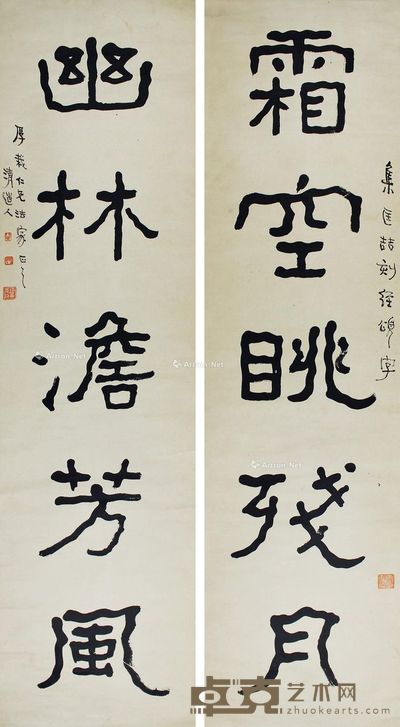 霜空眺残月
集匡喆刻经颂字
幽林澹芳风
厚载仁兄法家正之
清道人
Artron.Net
Artron.Net
Artron.Net
Artron.Net
卓克艺术网
www.zhuokearts.com